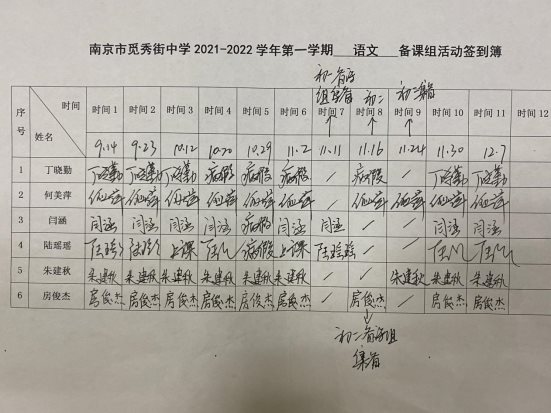 南京市觅秀街中学 2021-2022 学年第一学期 语文 备课组活动签到簿
初二备课组集备 初二 初二备
序号 时间 姓名 时间 1 时间 2 时间 3 时间 4 时间 5 时间 6 时间 7 时间 8 时间 9 时间 10 时间 11 时间 12
9.14 9.23 10.12 10.20 10.29 11.2 11.11 11.16 11.24 11.30 12.7
1 丁晓勤 丁晓勤 丁晓勤 丁晓勤 病假 病假 病假 / 病假 / 丁晓勤 丁晓勤
2 何美萍
3 闫涵 闫涵 闫涵 闫涵 闫涵 病假 闫涵 闫涵 / / 闫涵 闫涵
4 陆瑶瑶 上课 病假 上课 陆瑶瑶 / /
5 朱建秋 朱建秋 朱建秋 朱建秋 朱建秋 朱建秋 朱建秋 / / 朱建秋 朱建秋 朱建秋
6 房俊杰 房俊杰 房俊杰 房俊杰 房俊杰 房俊杰 房俊杰 / 房俊杰 / 房俊杰 房俊杰
初二备课组
集备